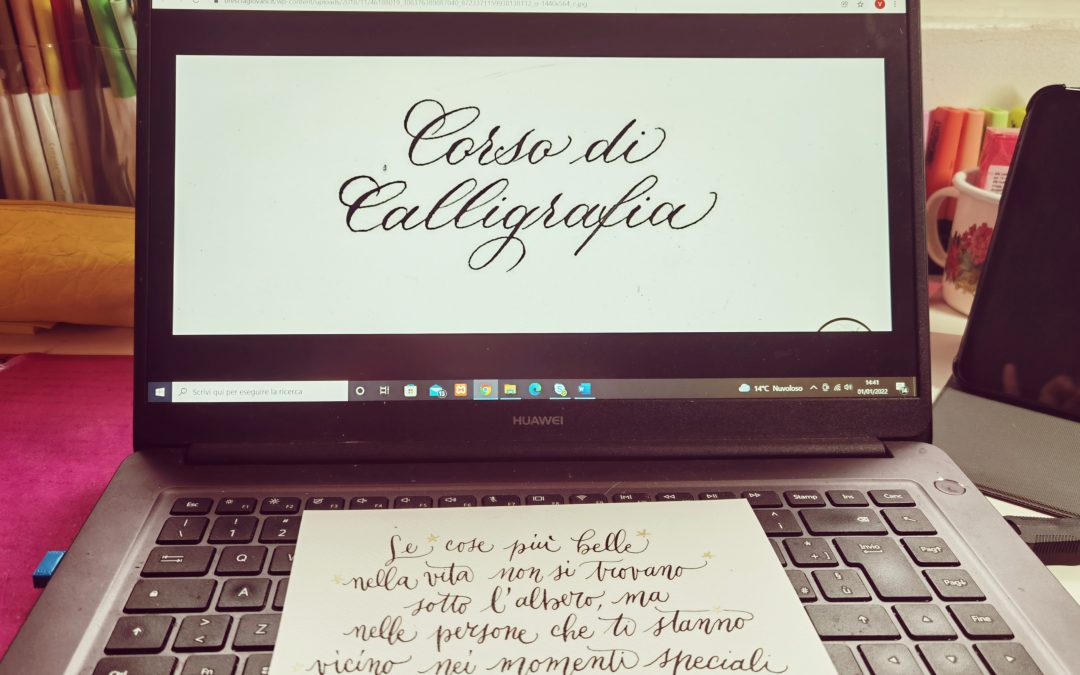 Corso di
Calligrafia
Scrivi qui per eseguire la ricerca
14°C Nuvoloso
14:41
01/01/2022
HUAWEI
Esc F1 F2 F3 F4 F5 F6 F7 F8 F9 F10 F11 F12 Stamp Ins Canc
\ | 1 ! 2 " ^ ì
Q * + ] Invio Pag
A # ° ù § Pag
> < Z Fine
Le cose più belle
nella vita non si trovano
sotto l'albero, ma
nelle persone che ti stanno
vicino nei momenti speciali